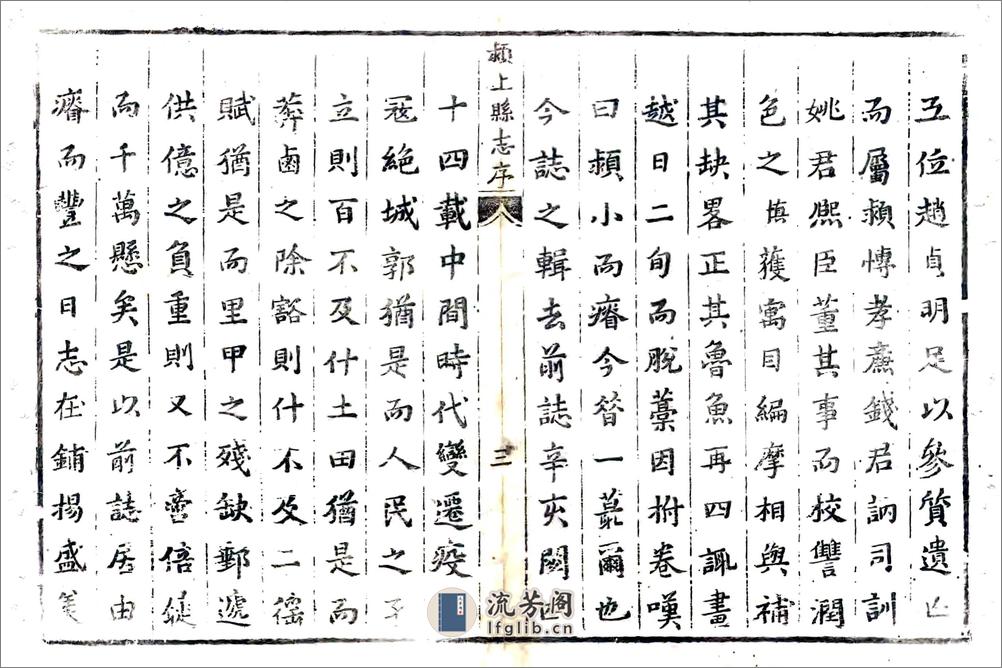 五位趙貞明足以參質遺亡
而屬潁愽孝廉錢君訥司訓
姚君熈臣董其事而校讐潤
色之慎獲寓目編摩相與補
其缺畧正其魯魚再四諏畫
越日二旬而脫藁因拊卷嘆
曰潁小而瘠今昔一蕞爾也
今誌之輯去前誌辛亥閱
潁上縣志序
三
十四載中間時代變遷疫
冦絕城郭猶是而人民之孑
立則百不及什土田猶是而
莽鹵之除豁則什不及二徭
賦猶是而里甲之殘缺郵遞
供億之負重則又不啻倍蓰
而千萬懸矣是以前誌居由
瘠而豐之日志在鋪揚盛美
流芳阁
lfglib.cn